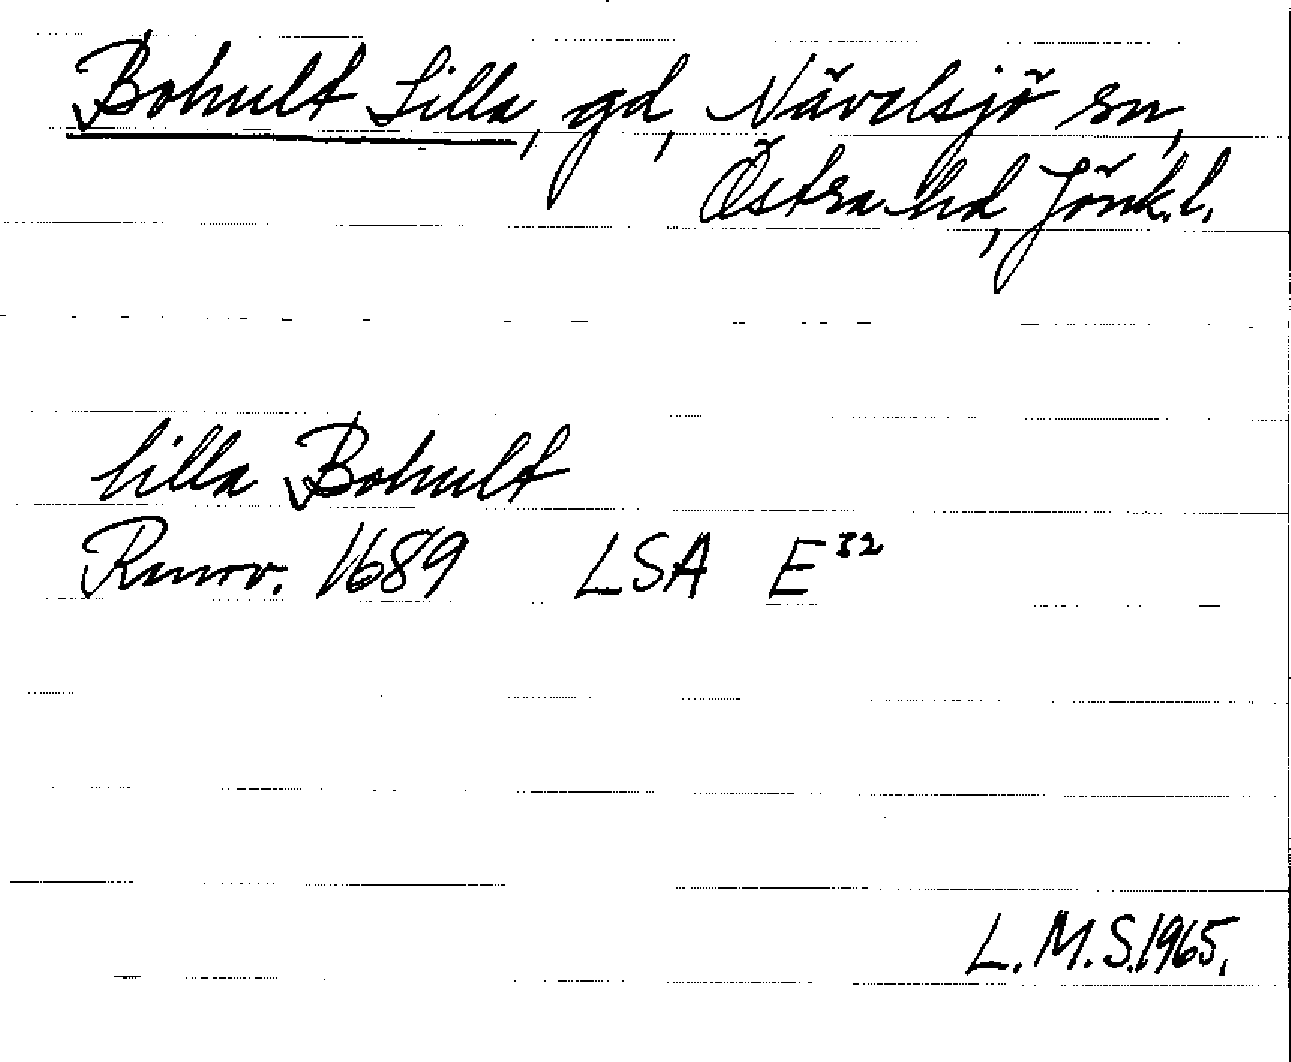 Bohult Lilla, gd, Nävelsjö sn,
Östra hd, Jönk.l.
lilla Bohult
Renov. 1689 LSA E32
L.M.S.1965.